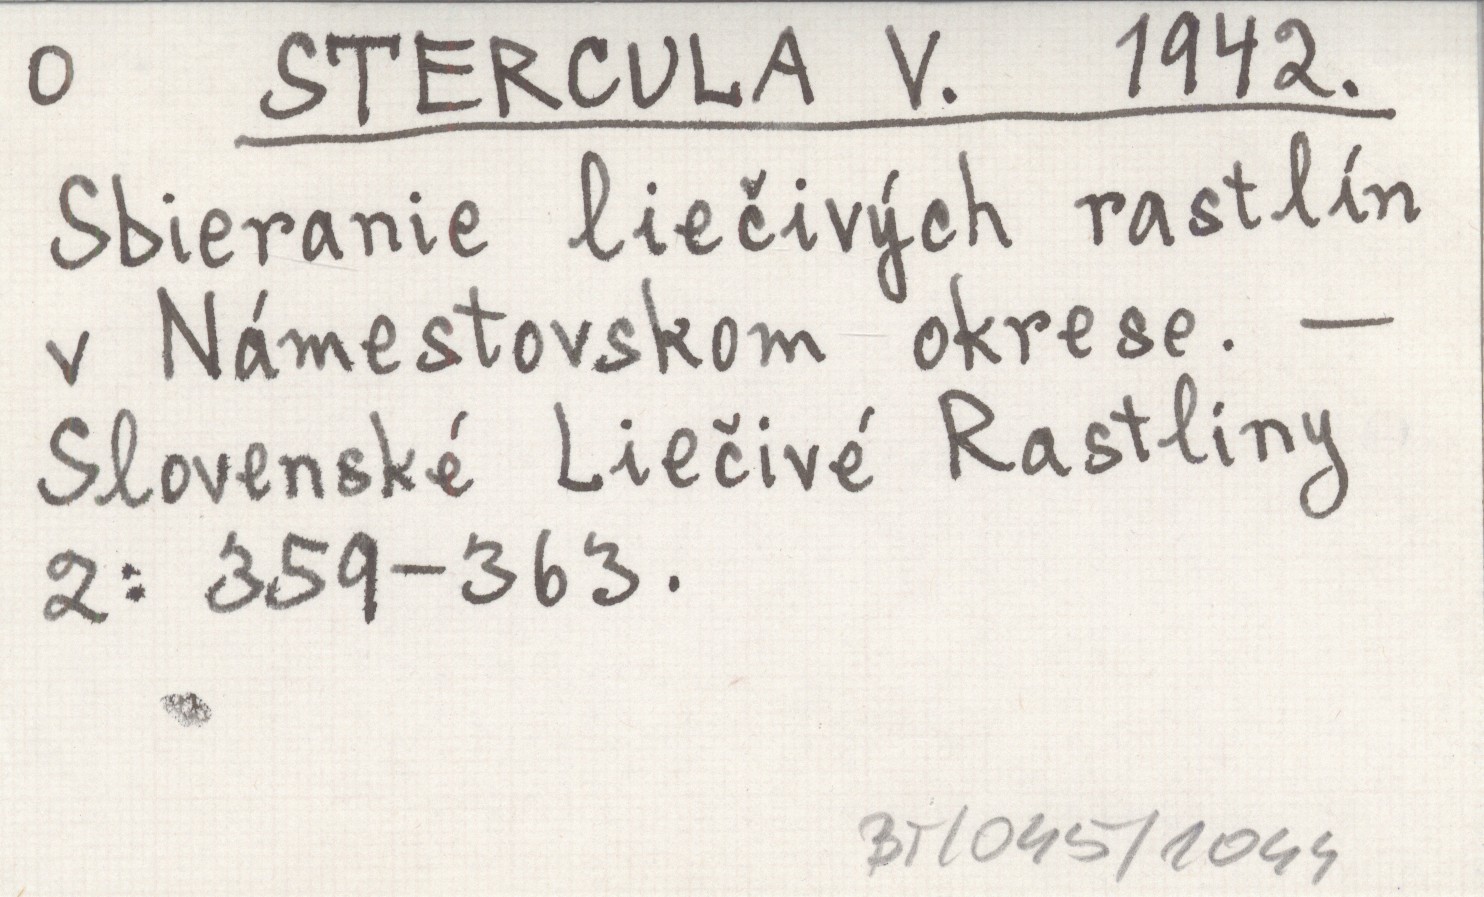 O STERCULA V. 1942.
Sbieranie liečivých rastlín
v Námestovskom okrese. —
Slovenské Liečivé Rastliny
2: 359-363.
BT/045/1044